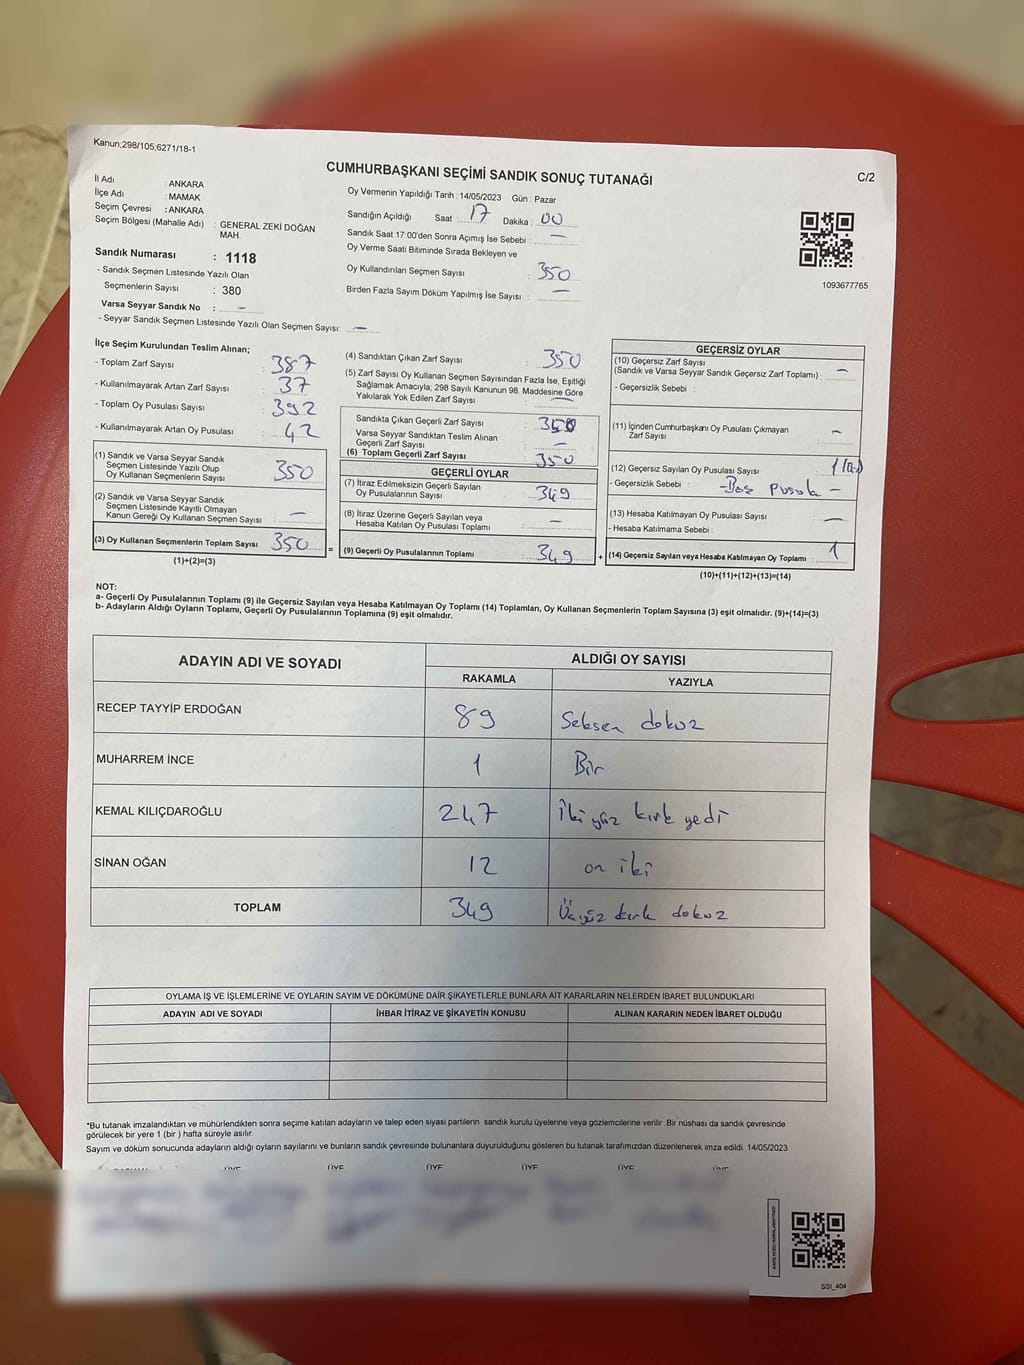 Kanun;298/105,6271/18-1
CUMHURBAŞKANI SEÇİMİ SANDIK SONUÇ TUTANAĞI
C/2
İl Adı : ANKARA
İlçe Adı : MAMAK
Seçim Çevresi : ANKARA
Seçim Bölgesi (Mahalle Adı) : GENERAL ZEKİ DOĞAN
MAH.
Sandık Numarası : 1118
- Sandık Seçmen Listesinde Yazılı Olan
Seçmenlerin Sayısı : 380
Varsa Seyyar Sandık No : –
- Seyyar Sandık Seçmen Listesinde Yazılı Olan Seçmen Sayısı: –
Oy Vermenin Yapıldığı Tarih : 14/05/2023 Gün : Pazar
Sandığın Açıldığı Saat : 17 Dakika : 00
Sandık Saat 17:00'den Sonra Açımış İse Sebebi : –
Oy Verme Saati Bitiminde Sırada Bekleyen ve
Oy Kullandırılan Seçmen Sayısı : 350
Birden Fazla Sayım Döküm Yapılmış İse Sayısı : –
1093677765
İlçe Seçim Kurulundan Teslim Alınan;
- Toplam Zarf Sayısı : 387
- Kullanılmayarak Artan Zarf Sayısı : 37
- Toplam Oy Pusulası Sayısı : 392
- Kullanılmayarak Artan Oy Pusulası : 42
(1) Sandık ve Varsa Seyyar Sandık
Seçmen Listesinde Yazılı Olup
Oy Kullanan Seçmenlerin Sayısı : 350
(2) Sandık ve Varsa Seyyar Sandık
Seçmen Listesinde Kayıtlı Olmayan
Kanun Gereği Oy Kullanan Seçmen Sayısı : –
(3) Oy Kullanan Seçmenlerin Toplam Sayısı : 350
(1)+(2)=(3)
(4) Sandıktan Çıkan Zarf Sayısı : 350
(5) Zarf Sayısı Oy Kullanan Seçmen Sayısından Fazla İse, Eşitliği
Sağlamak Amacıyla; 298 Sayılı Kanunun 98. Maddesine Göre
Yakılarak Yok Edilen Zarf Sayısı : –
Sandıkta Çıkan Geçerli Zarf Sayısı : 350
Varsa Seyyar Sandıktan Teslim Alınan
Geçerli Zarf Sayısı : –
(6) Toplam Geçerli Zarf Sayısı : 350
GEÇERLİ OYLAR
(7) İtiraz Edilmeksizin Geçerli Sayılan
Oy Pusulalarının Sayısı : 349
(8) İtiraz Üzerine Geçerli Sayılan veya
Hesaba Katılan Oy Pusulası Toplamı : –
= (9) Geçerli Oy Pusulalarının Toplamı : 349 +
GEÇERSİZ OYLAR
(10) Geçersiz Zarf Sayısı
(Sandık ve Varsa Seyyar Sandık Geçersiz Zarf Toplamı) : –
- Geçersizlik Sebebi :
(11) İçinden Cumhurbaşkanı Oy Pusulası Çıkmayan
Zarf Sayısı : –
(12) Geçersiz Sayılan Oy Pusulası Sayısı : 1
- Geçersizlik Sebebi : -Boş pusula -
(13) Hesaba Katılmayan Oy Pusulası Sayısı : –
- Hesaba Katılmama Sebebi :
(14) Geçersiz Sayılan veya Hesaba Katılmayan Oy Toplamı : 1
(10)+(11)+(12)+(13)=(14)
NOT:
a- Geçerli Oy Pusulalarının Toplamı (9) ile Geçersiz Sayılan veya Hesaba Katılmayan Oy Toplamı (14) Toplamları, Oy Kullanan Seçmenlerin Toplam Sayısına (3) eşit olmalıdır. (9)+(14)=(3)
b- Adayların Aldığı Oyların Toplamı, Geçerli Oy Pusulalarının Toplamına (9) eşit olmalıdır.
ADAYIN ADI VE SOYADI ALDIĞI OY SAYISI
RAKAMLA YAZIYLA
RECEP TAYYİP ERDOĞAN 89 Seksen dokuz
MUHARREM İNCE 1 Bir
KEMAL KILIÇDAROĞLU 247 İki yüz kırk yedi
SİNAN OĞAN 12 on iki
TOPLAM 349 Üçyüz kırk dokuz
OYLAMA İŞ VE İŞLEMLERİNE VE OYLARIN SAYIM VE DÖKÜMÜNE DAİR ŞİKAYETLERLE BUNLARA AİT KARARLARIN NELERDEN İBARET BULUNDUKLARI
ADAYIN ADI VE SOYADI İHBAR İTİRAZ VE ŞİKAYETİN KONUSU ALINAN KARARIN NEDEN İBARET OLDUĞU
*Bu tutanak imzalandıktan ve mühürlendikten sonra seçime katılan adayların ve talep eden siyasi partilerin sandık kurulu üyelerine veya gözlemcilerine verilir .Bir nüshası da sandık çevresinde
görülecek bir yere 1 (bir ) hafta süreyle asılır.
Sayım ve döküm sonucunda adayların aldığı oyların sayılarını ve bunların sandık çevresinde bulunanlara duyurulduğunu gösteren bu tutanak tarafımızdan düzenlenerek imza edildi. 14/05/2023
ÜYE ÜYE ÜYE ÜYE ÜYE ÜYE
SSI_404